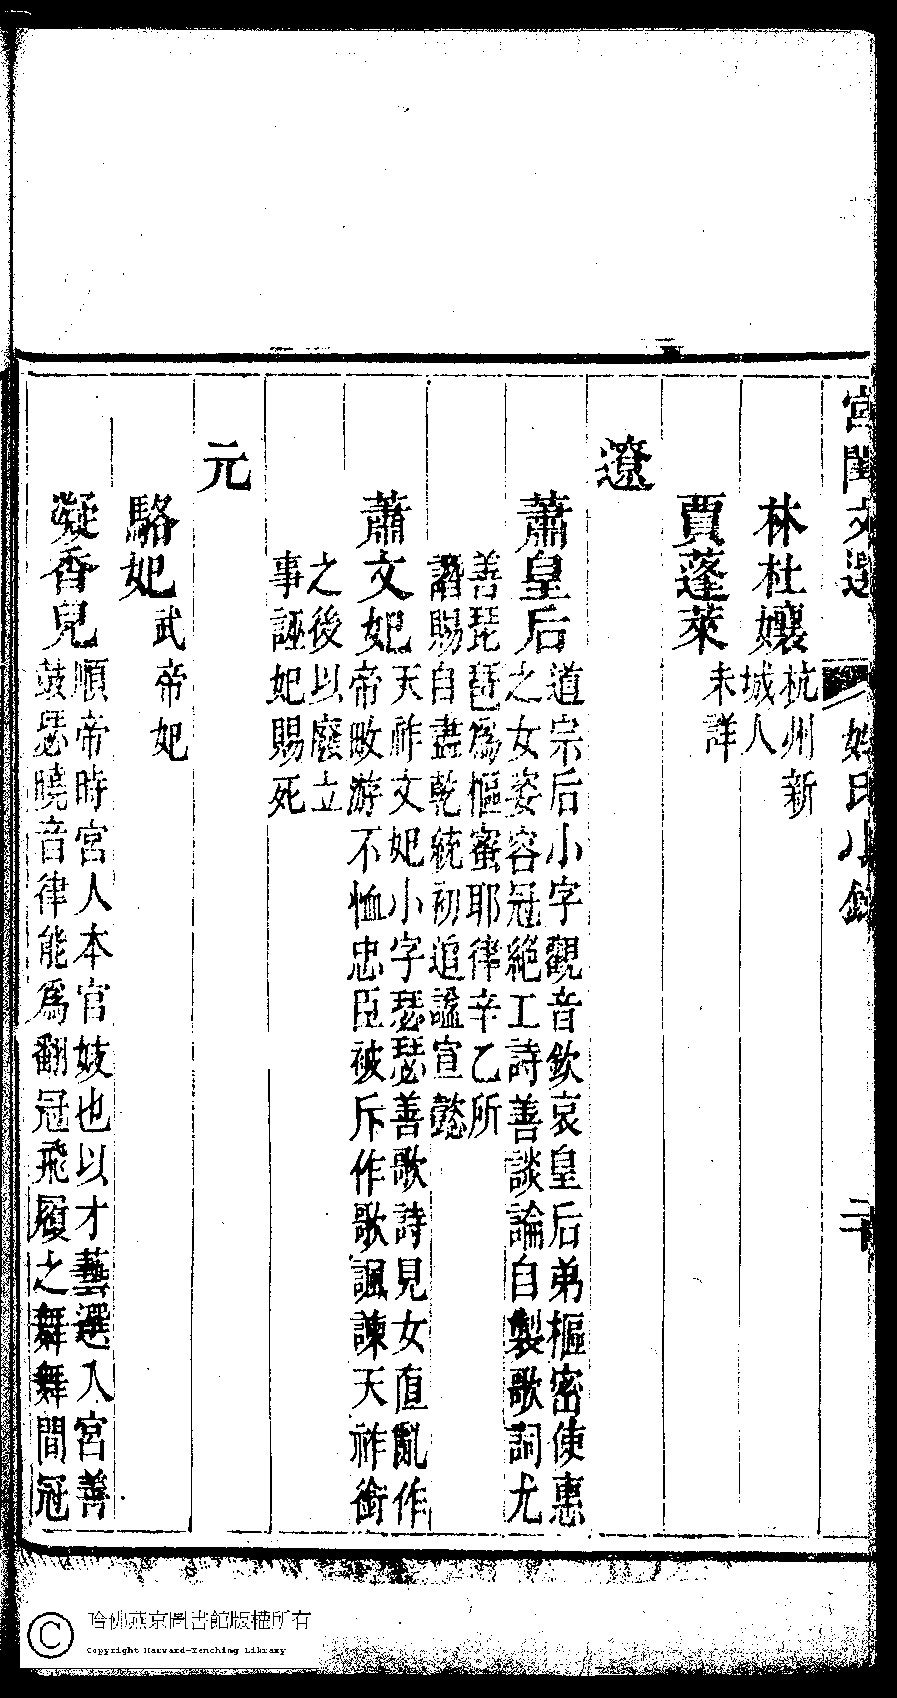 宮閨文選 姓氏小錄 二十
林杜孃 杭州新
城人
賈蓬萊 未詳
遼
蕭皇后 道宗后小字觀音欽哀皇后弟樞密使惠
之女姿容冠絕工詩善談論自製歌詞尤
善琵琶為樞蜜耶律辛乙所
譖賜自盡乾統初追謚宣懿
蕭文妃 天祚文妃小字瑟瑟善歌詩見女直亂作
帝畋游不恤忠臣被斥作歌諷諫天祚銜
之後以廢立
事誣妃賜死
元
駱妃 武帝妃
凝香兒 順帝時宮人本官妓也以才藝選入宮善
鼓瑟曉音律能為翻冠飛履之舞舞間冠
哈佛燕京圖書館版權所有
Copyright Harvard-Yenching Library